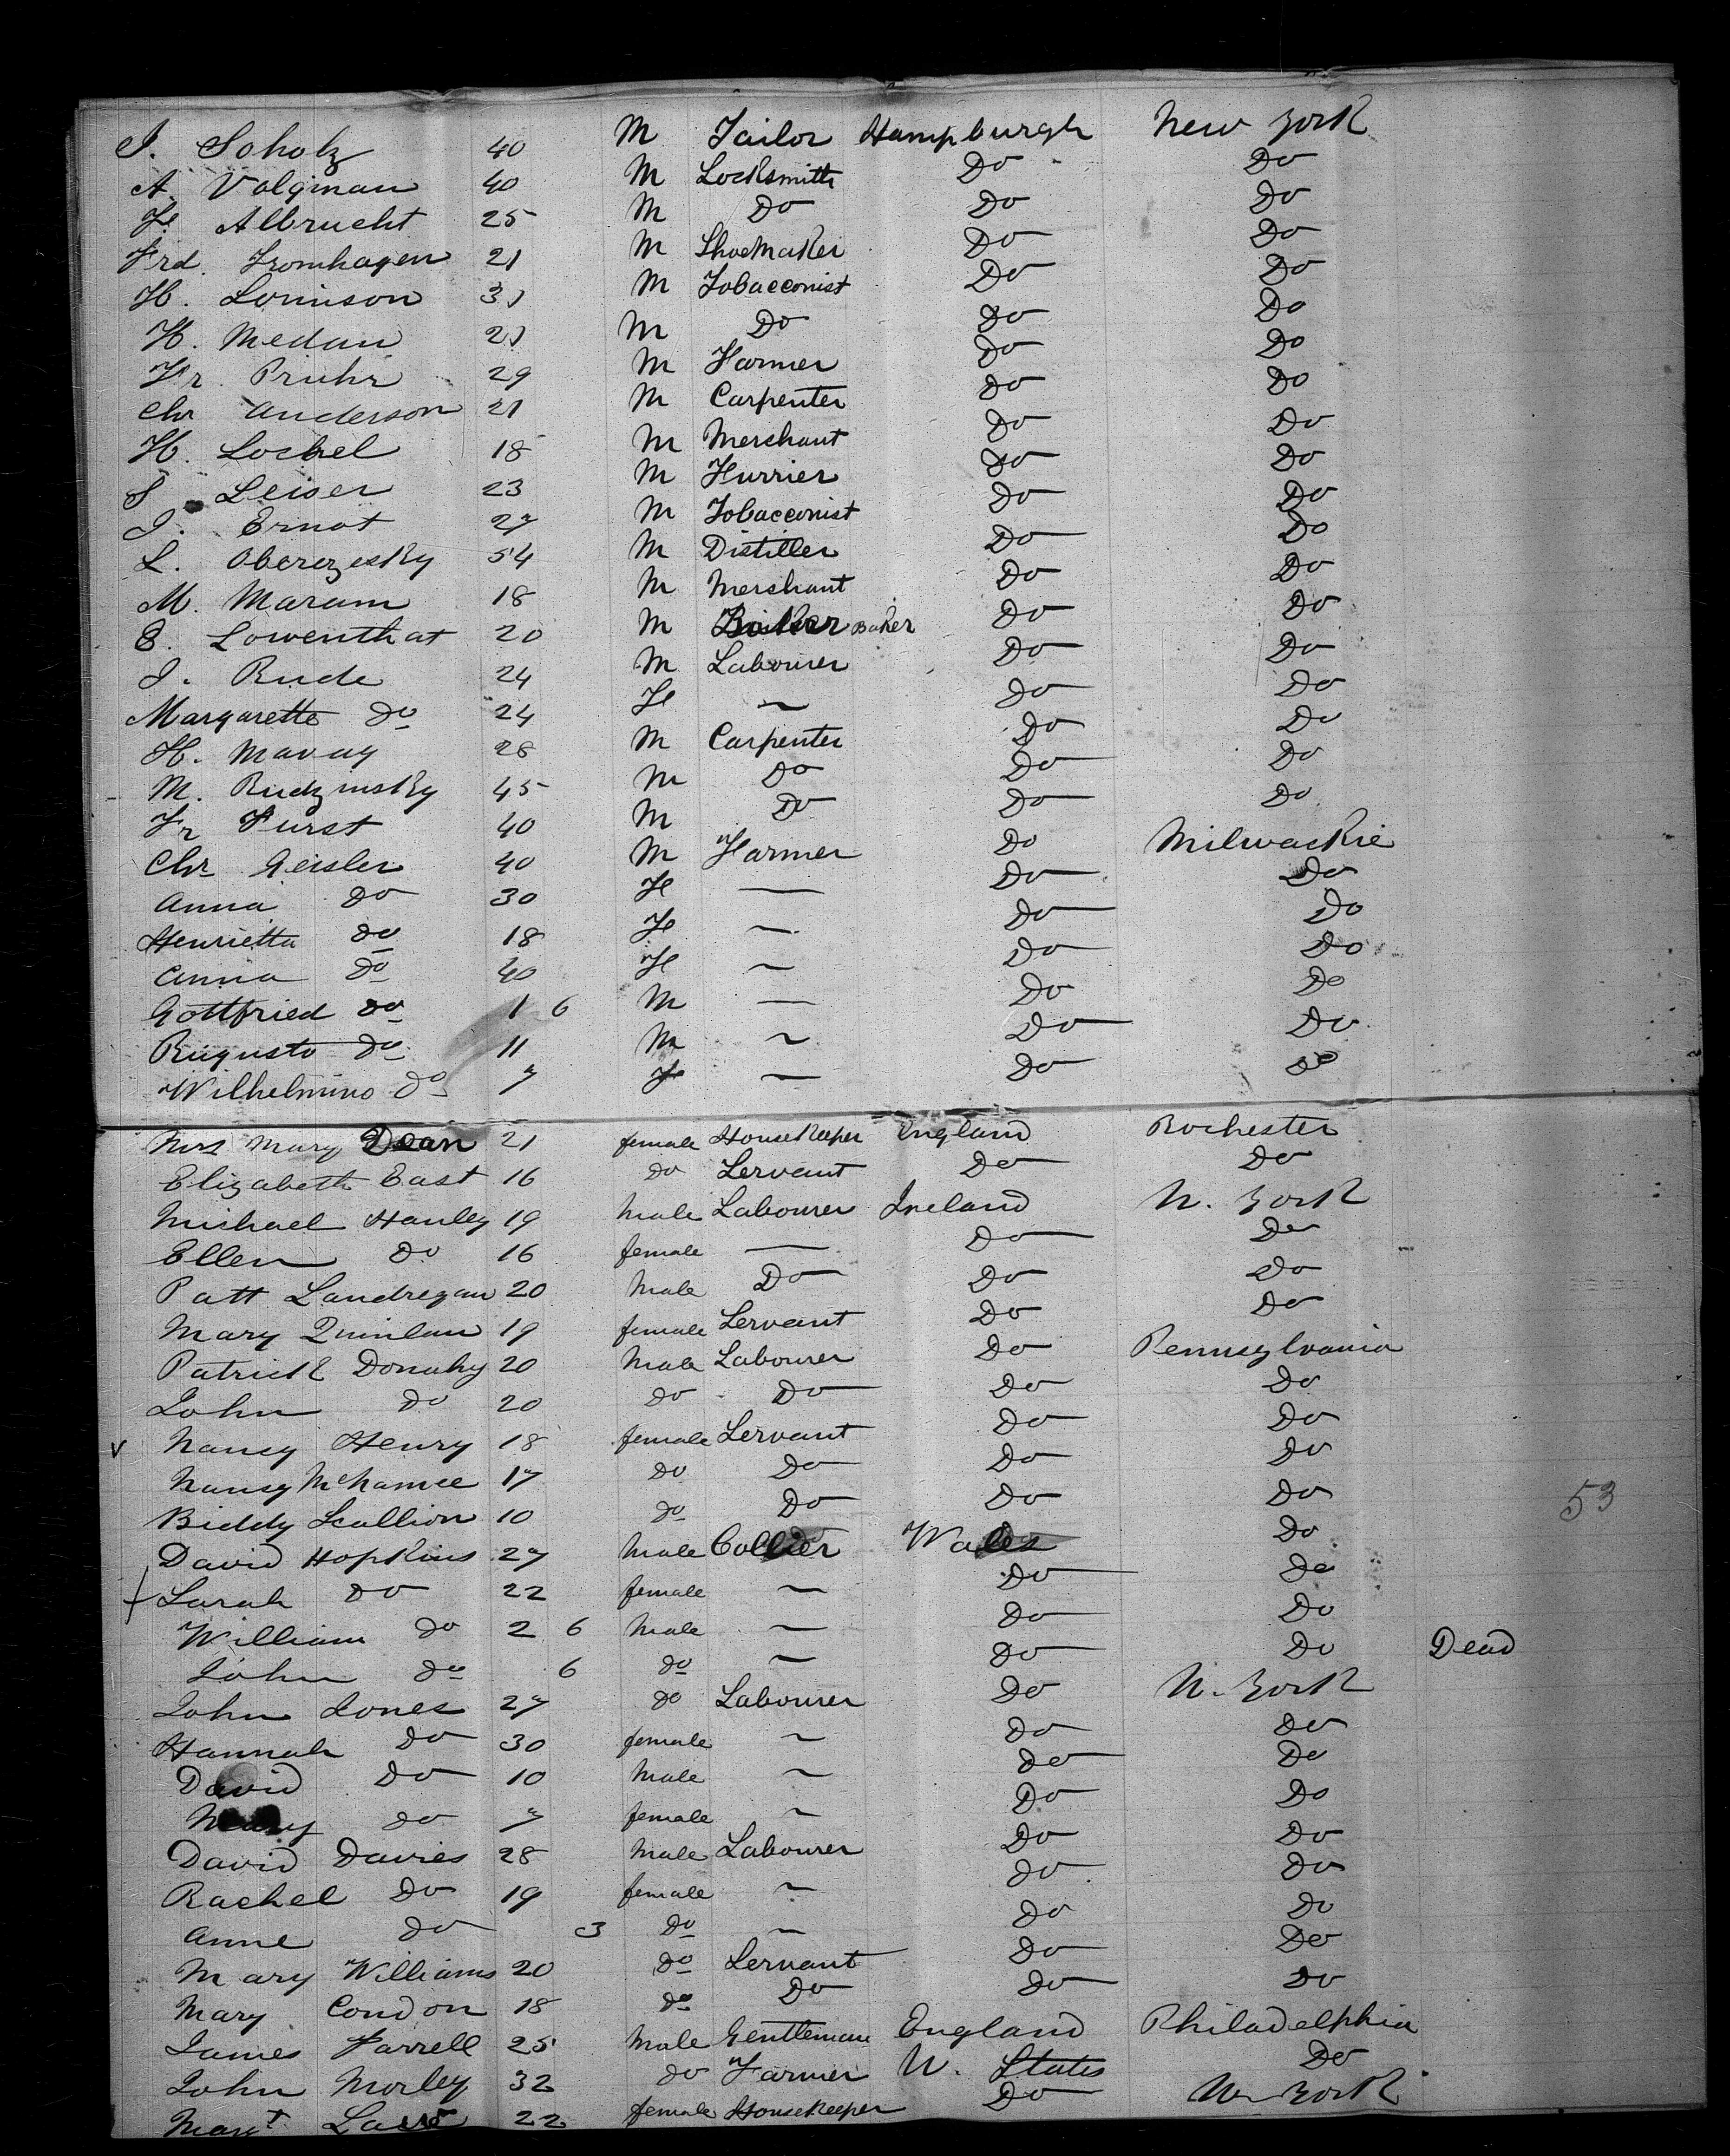 J. Soholz 40 M Tailor Hampburgh New York
A. Volgman 40 M Locksmith Do Do
F. Albrucht 25 M Do Do Do
Frd. Fromhagen 21 M ShoeMaker Do Do
H. Lorinson 31 M Tobacconist Do Do
H. Medan 21 M Do Do Do
Fr. Pruhr 29 M Farmer Do Do
Chr Anderson 21 M Carpenter Do Do
H. Lochel 18 M Merchant Do Do
S Leiser 23 M Furrier Do Do
J. Ernat 27 M Tobacconist Do Do
L. Oberezesky 54 M Distiller Do Do
M. Maram 18 M Merchant Do Do
E. Lowenthat 20 M Baker Baker Do Do
J. Rude 24 M Labourer Do Do
Margarette Do 24 F ~ Do Do
H. Mavay 28 M Carpenter Do Do
M. Rudzinsky 45 M Do Do Do
Fr Furst 40 M Do Do Do
Chr Geisler 40 M Farmer Do Milwackie
Anna Do 30 F — Do Do
Henrietta do 18 F ~ Do Do
Anna Do 40 F ~ Do Do
Gottfried Do 1 6 M — Do Do
Rugusto Do 11 M ~ Do Do
Wilhelmino Do 7 F ~ Do Do
Mrs Mary Dean 21 female HouseKeeper England Rochester
Elizabeth East 16 do Servant Do Do
Michael Hanley 19 Male Labourer Ireland N. York
Ellen Do 16 female — Do Do
Patt Landregan 20 Male Do Do Do
Mary Quinlan 19 female Servant Do Do
Patrick Donahy 20 Male Labourer Do Pennsylvania
John do 20 do Do Do Do
v Nancy Henry 18 female Servant Do Do
Nancy McNamee 17 do Do Do Do
Biddy Scallion 10 do Do Do Do
53
David Hopkins 27 Male Collier Wales Do
Sarah Do 22 female ~ Do Do
William do 2 6 Male ~ Do Do
John do 6 do ~ Do Do Dead
John Jones 27 do Labourer Do N. York
Hannah Do 30 female ~ Do Do
David Do 10 Male ~ Do Do
Mary do 7 female ~ Do Do
David Davies 28 Male Labourer Do Do
Rachel Do 19 female ~ Do Do
Anne do 3 do ~ Do Do
Mary Williams 20 do Servant Do Do
Mary Condon 18 do Do Do Do
James Farrell 25 Male Gentleman England Philadelphia
John Morley 32 do Farmer U. States Do
Margt 22 female HouseKeeper Do N. York